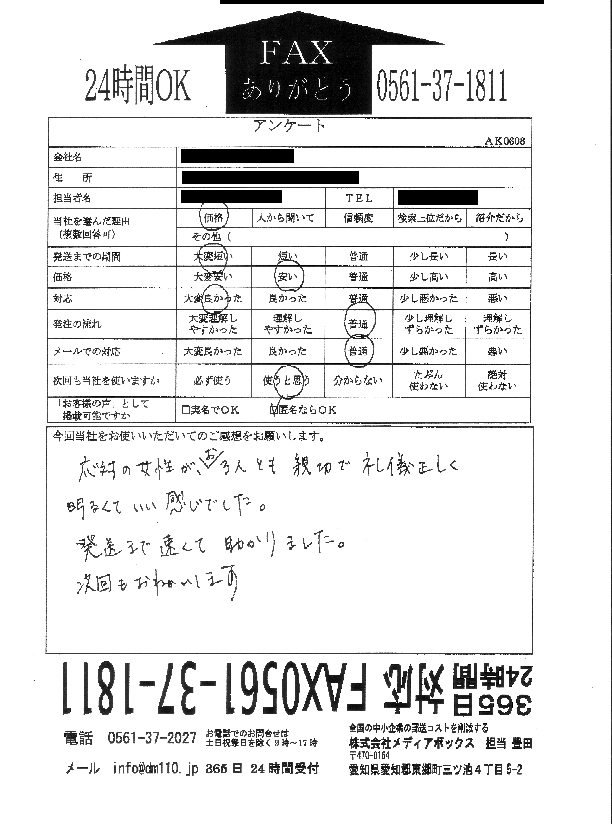 FAX
ありがとう
24時間OK
0561-37-1811
アンケート
AK0608
会社名
住 所
担当者名 TEL
当社を選んだ理由(複数回答可) 価格 人から聞いて 信頼度 検索上位だから 紹介だから
その他( )
発送までの期間 大変短い 短い 普通 少し長い 長い
価格 大変安い 安い 普通 少し高い 高い
対応 大変良かった 良かった 普通 少し悪かった 悪い
発注の流れ 大変理解しやすかった 理解しやすかった 普通 少し理解しずらかった 理解しずらかった
メールでの対応 大変良かった 良かった 普通 少し悪かった 悪い
次回も当社を使いますか 必ず使う 使うと思う 分からない たぶん使わない 絶対使わない
「お客様の声」として掲載可能ですか □実名でOK □匿名ならOK
今回当社をお使いいただいてのご感想をお願いします。
応対の女性が、お2人とも 親切で 礼儀正しく
明るくていい感じでした。
発送まで速くて助かりました。
次回もおねがいします
365日24時間対応 FAX0561-37-1811
電話 0561-37-2027 お電話でのお問合せは土日祝祭日を除く9時~17時
メール info@dm110.jp 365日 24時間受付
全国の中小企業の郵送コストを削減する
株式会社メディアボックス 担当 豊田
〒470-0164
愛知県愛知郡東郷町三ツ池4丁目5-2